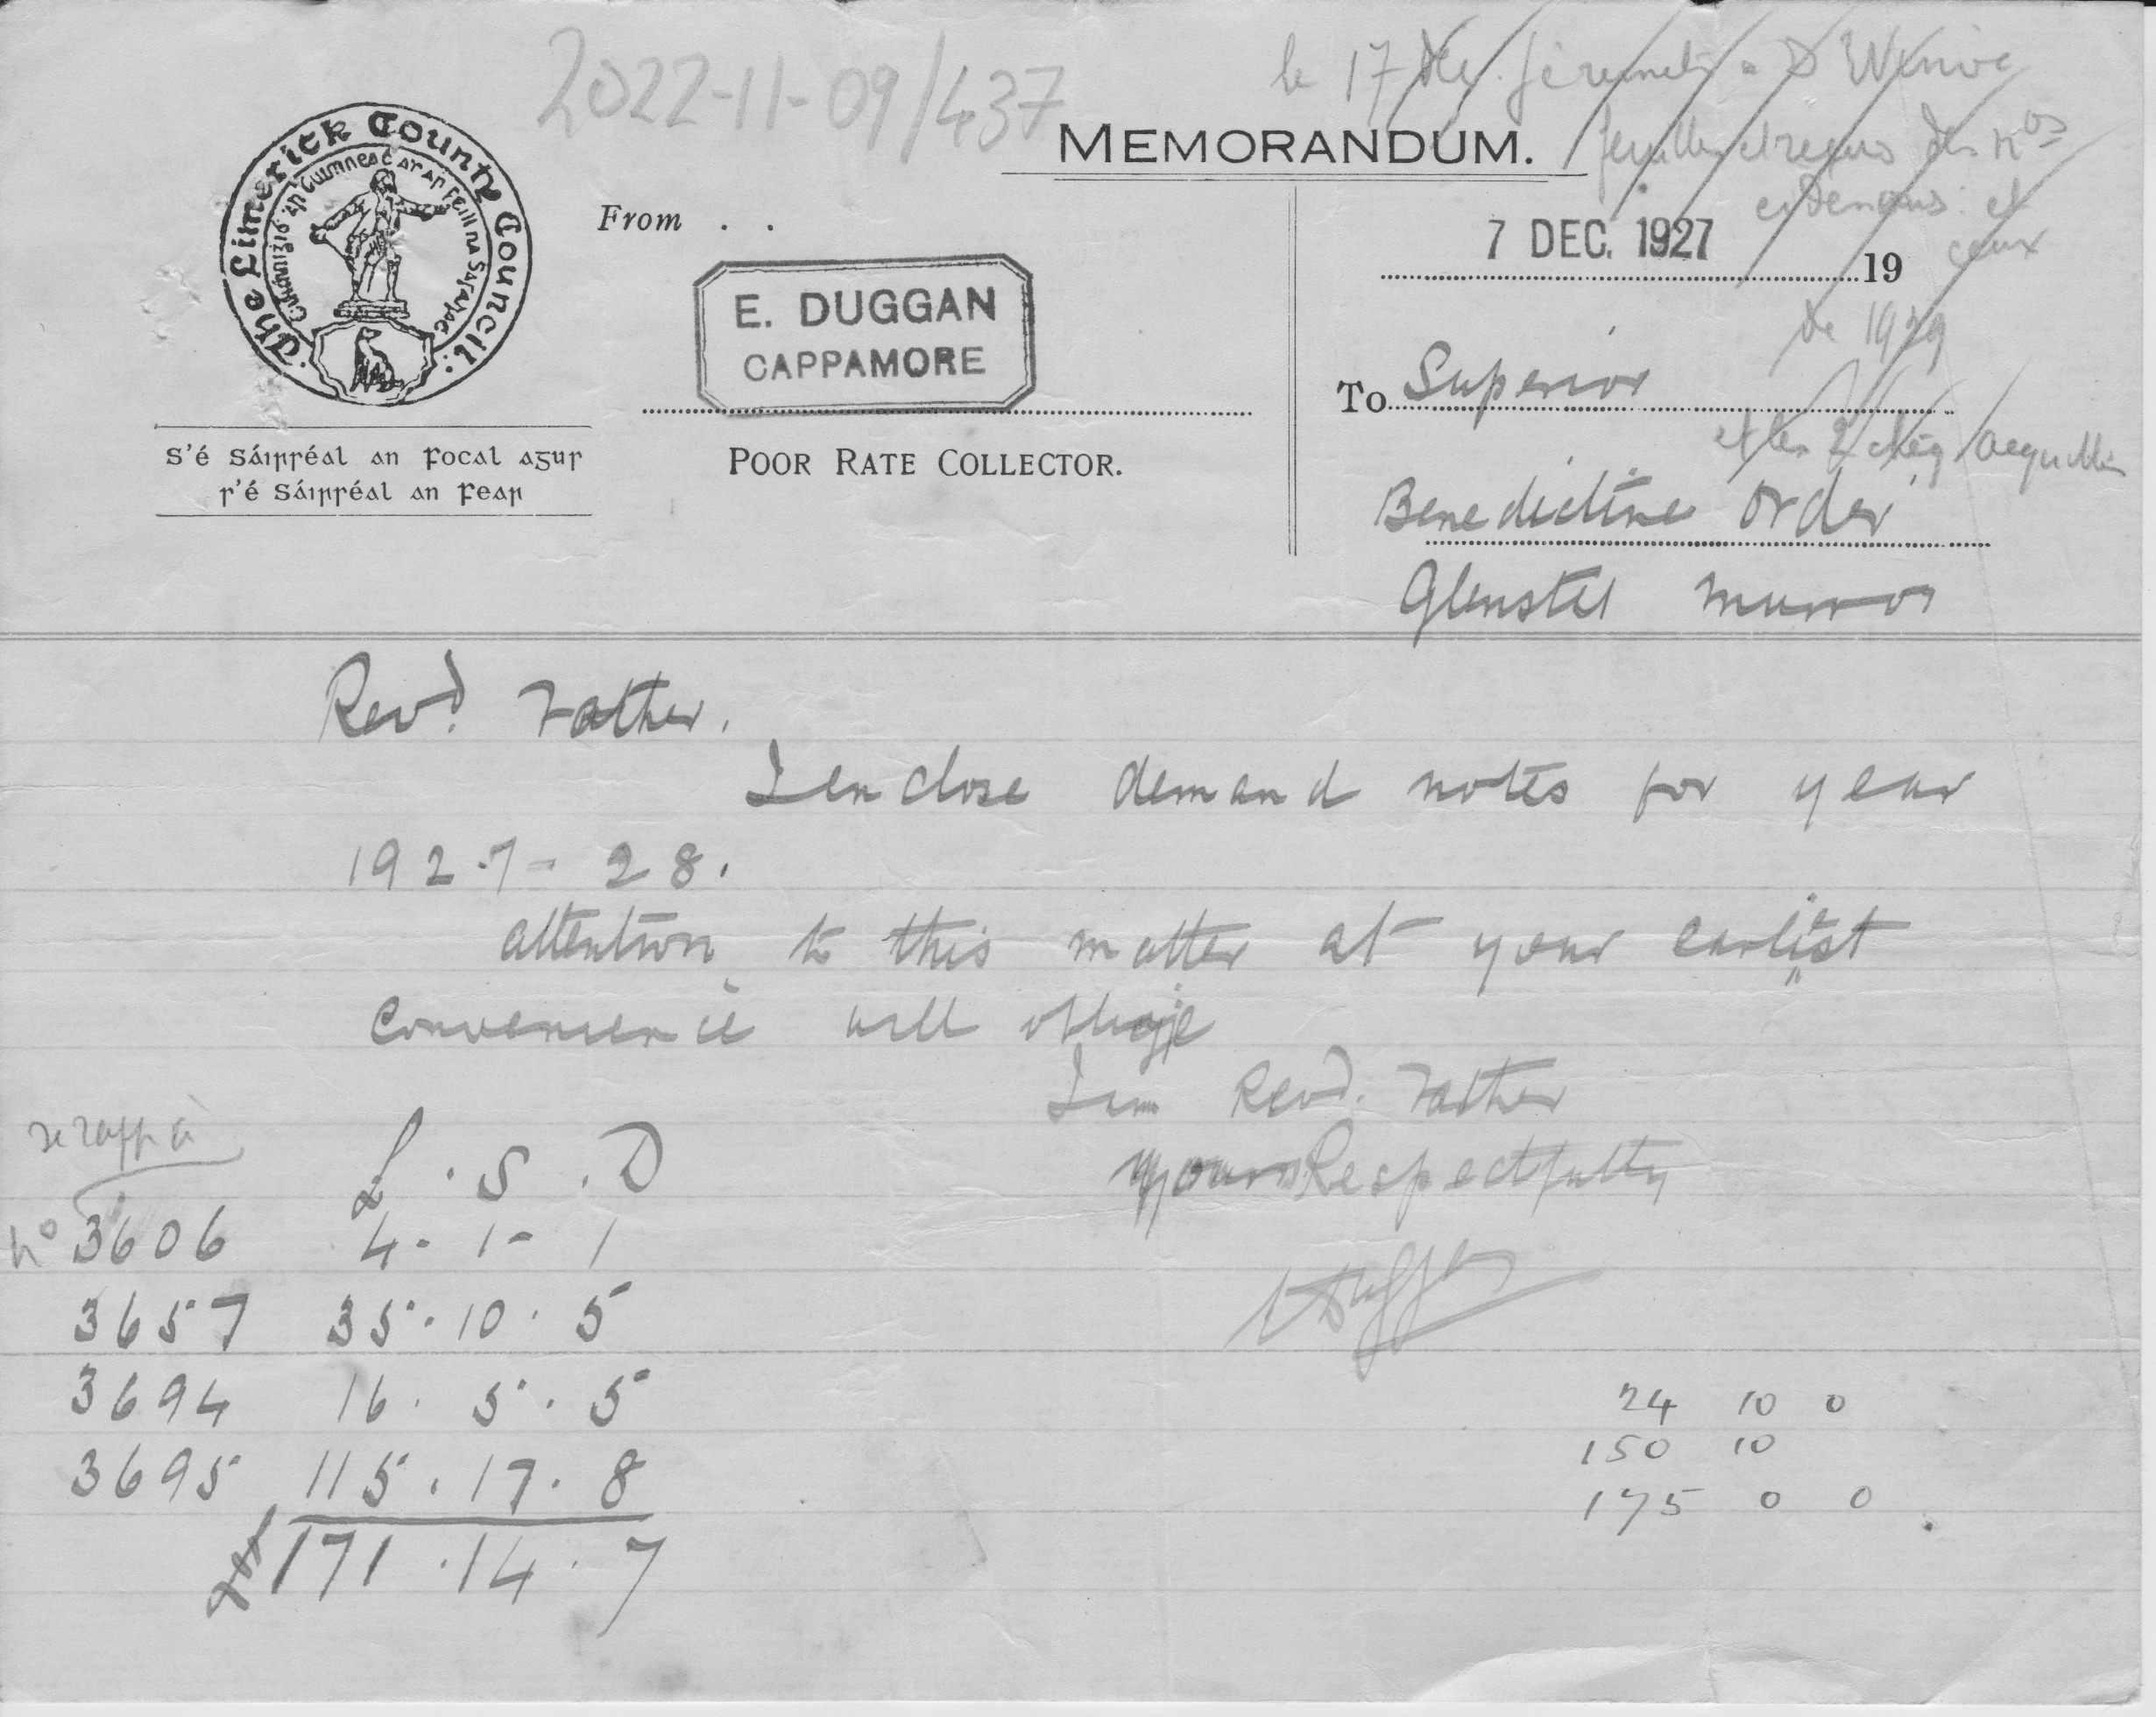 2022-11-09/437
le 17
The Limerick County Council.
MEMORANDUM.
des nos
ci-dessus et
ceux
From . .
7 DEC. 1927
19
de 1929
E. DUGGAN
CAPPAMORE
To Superior
et les 2 chèq
S'é Sáirséal an focal agus
s'é Sáirséal an fear
POOR RATE COLLECTOR.
Benedictine Order
Glenstel Murroe
Revd. Father.
I enclose demand notes for year
1927-28.
attention to this matter at your earliest
convenience will oblige
I am Revd. Father
Yours Respectfully
EDuggan
se rapp à
£ . S . D
no 3606 4 - 1 - 1
3657 35 . 10 . 5
3694 16 . 5 . 5
3695 115 . 17 . 8
171 . 14 . 7
24 10 0
150 10
175 0 0